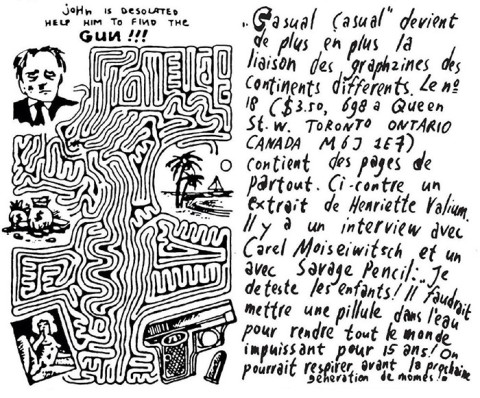 JOHN IS DESOLATED
HELP HIM TO FIND THE
GUN !!!
„Casual Casual" devient
de plus en plus la
liaison des graphzines des
continents differents. Le nº
18 ($3.50, 698 a Queen
St. W. TORONTO ONTARIO
CANADA M6J 1E7)
contient des pages de
partout. Ci-contre un
extrait de Henriette Valium.
Il y a un interview avec
Carel Moiseiwitsch et un
avec Savage Pencil: „Je
deteste les enfants! Il faudrait
mettre une pillule dans l'eau
pour rendre tout le monde
impuissant pour 15 ans! On
pourrait respirer avant la prochaine
géneration de momes!"